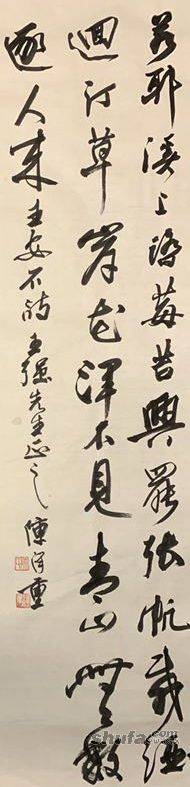 若耶溪上踏莓苔興罷張帆載酒
迴汀草岸花渾不見青山無數
逐人來 王安石詩 王強先生正之 陳
shufa.com